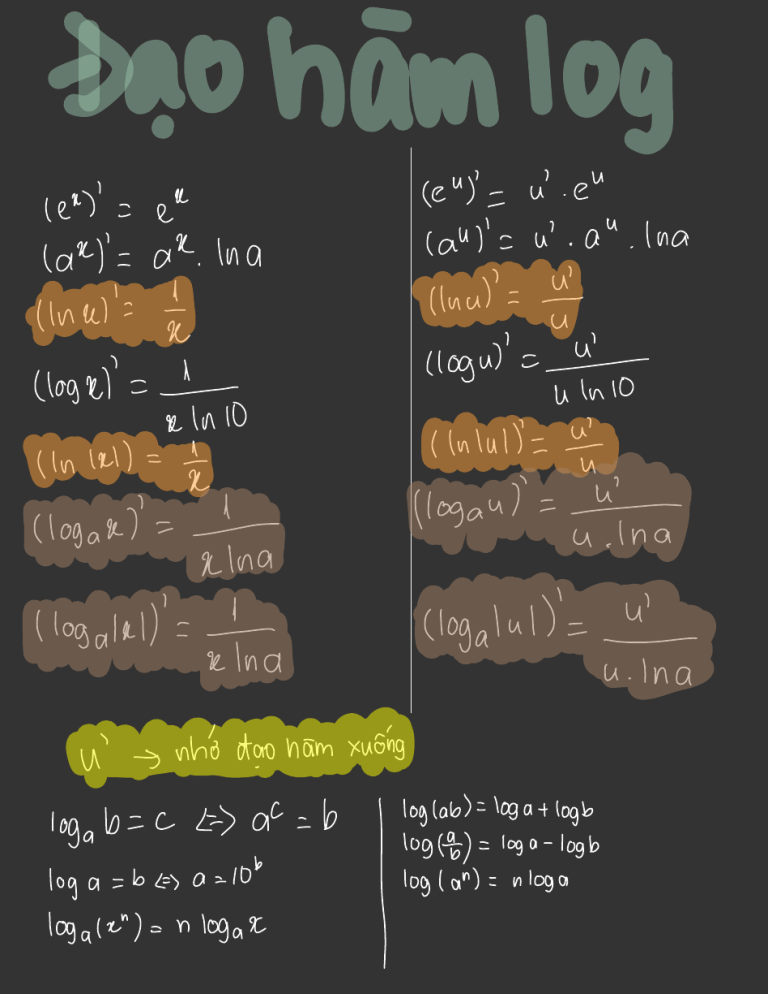 Đạo hàm log
(eˣ)' = eˣ
(aˣ)' = aˣ . ln a
(ln x)' = 1/x
(log x)' = 1/(x ln 10)
(ln |x|) = 1/x
(logₐ x)' = 1/(x ln a)
(logₐ |x|)' = 1/(x ln a)
(eᵘ)' = u' . eᵘ
(aᵘ)' = u' . aᵘ . ln a
(ln u)' = u'/u
(log u)' = u'/(u ln 10)
(ln |u|)' = u'/u
(logₐ u)' = u'/(u . ln a)
(logₐ |u|)' = u'/(u . ln a)
u' → nhớ đạo hàm xuống
logₐ b = c <=> aᶜ = b
log a = b <=> a = 10ᵇ
logₐ (xⁿ) = n logₐ x
log (ab) = log a + log b
log (a/b) = log a - log b
log (aⁿ) = n log a